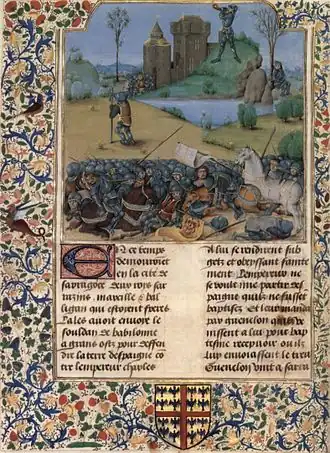 En ce temps
demouroient
en la cite de
sarragoce deux roys sar
razins marxille et bal
ligan qui estoient freres
lesquelz avoit envoie le
souldan de babilonne
a grans ostz pour deffen
dre la terre despaigne co
tre lempereur charles
A lui se rendirent sub
getz et obeyssans fainte
ment Lempereur ne
se voult mie partir des
paigne quilz ne fussent
baptisez Et leur manda
par guenelon quilz ve
nissent a lui pour bap
tesme recevoir ou ilz
lui envoiassent le treu
Guenelon vint a sarra